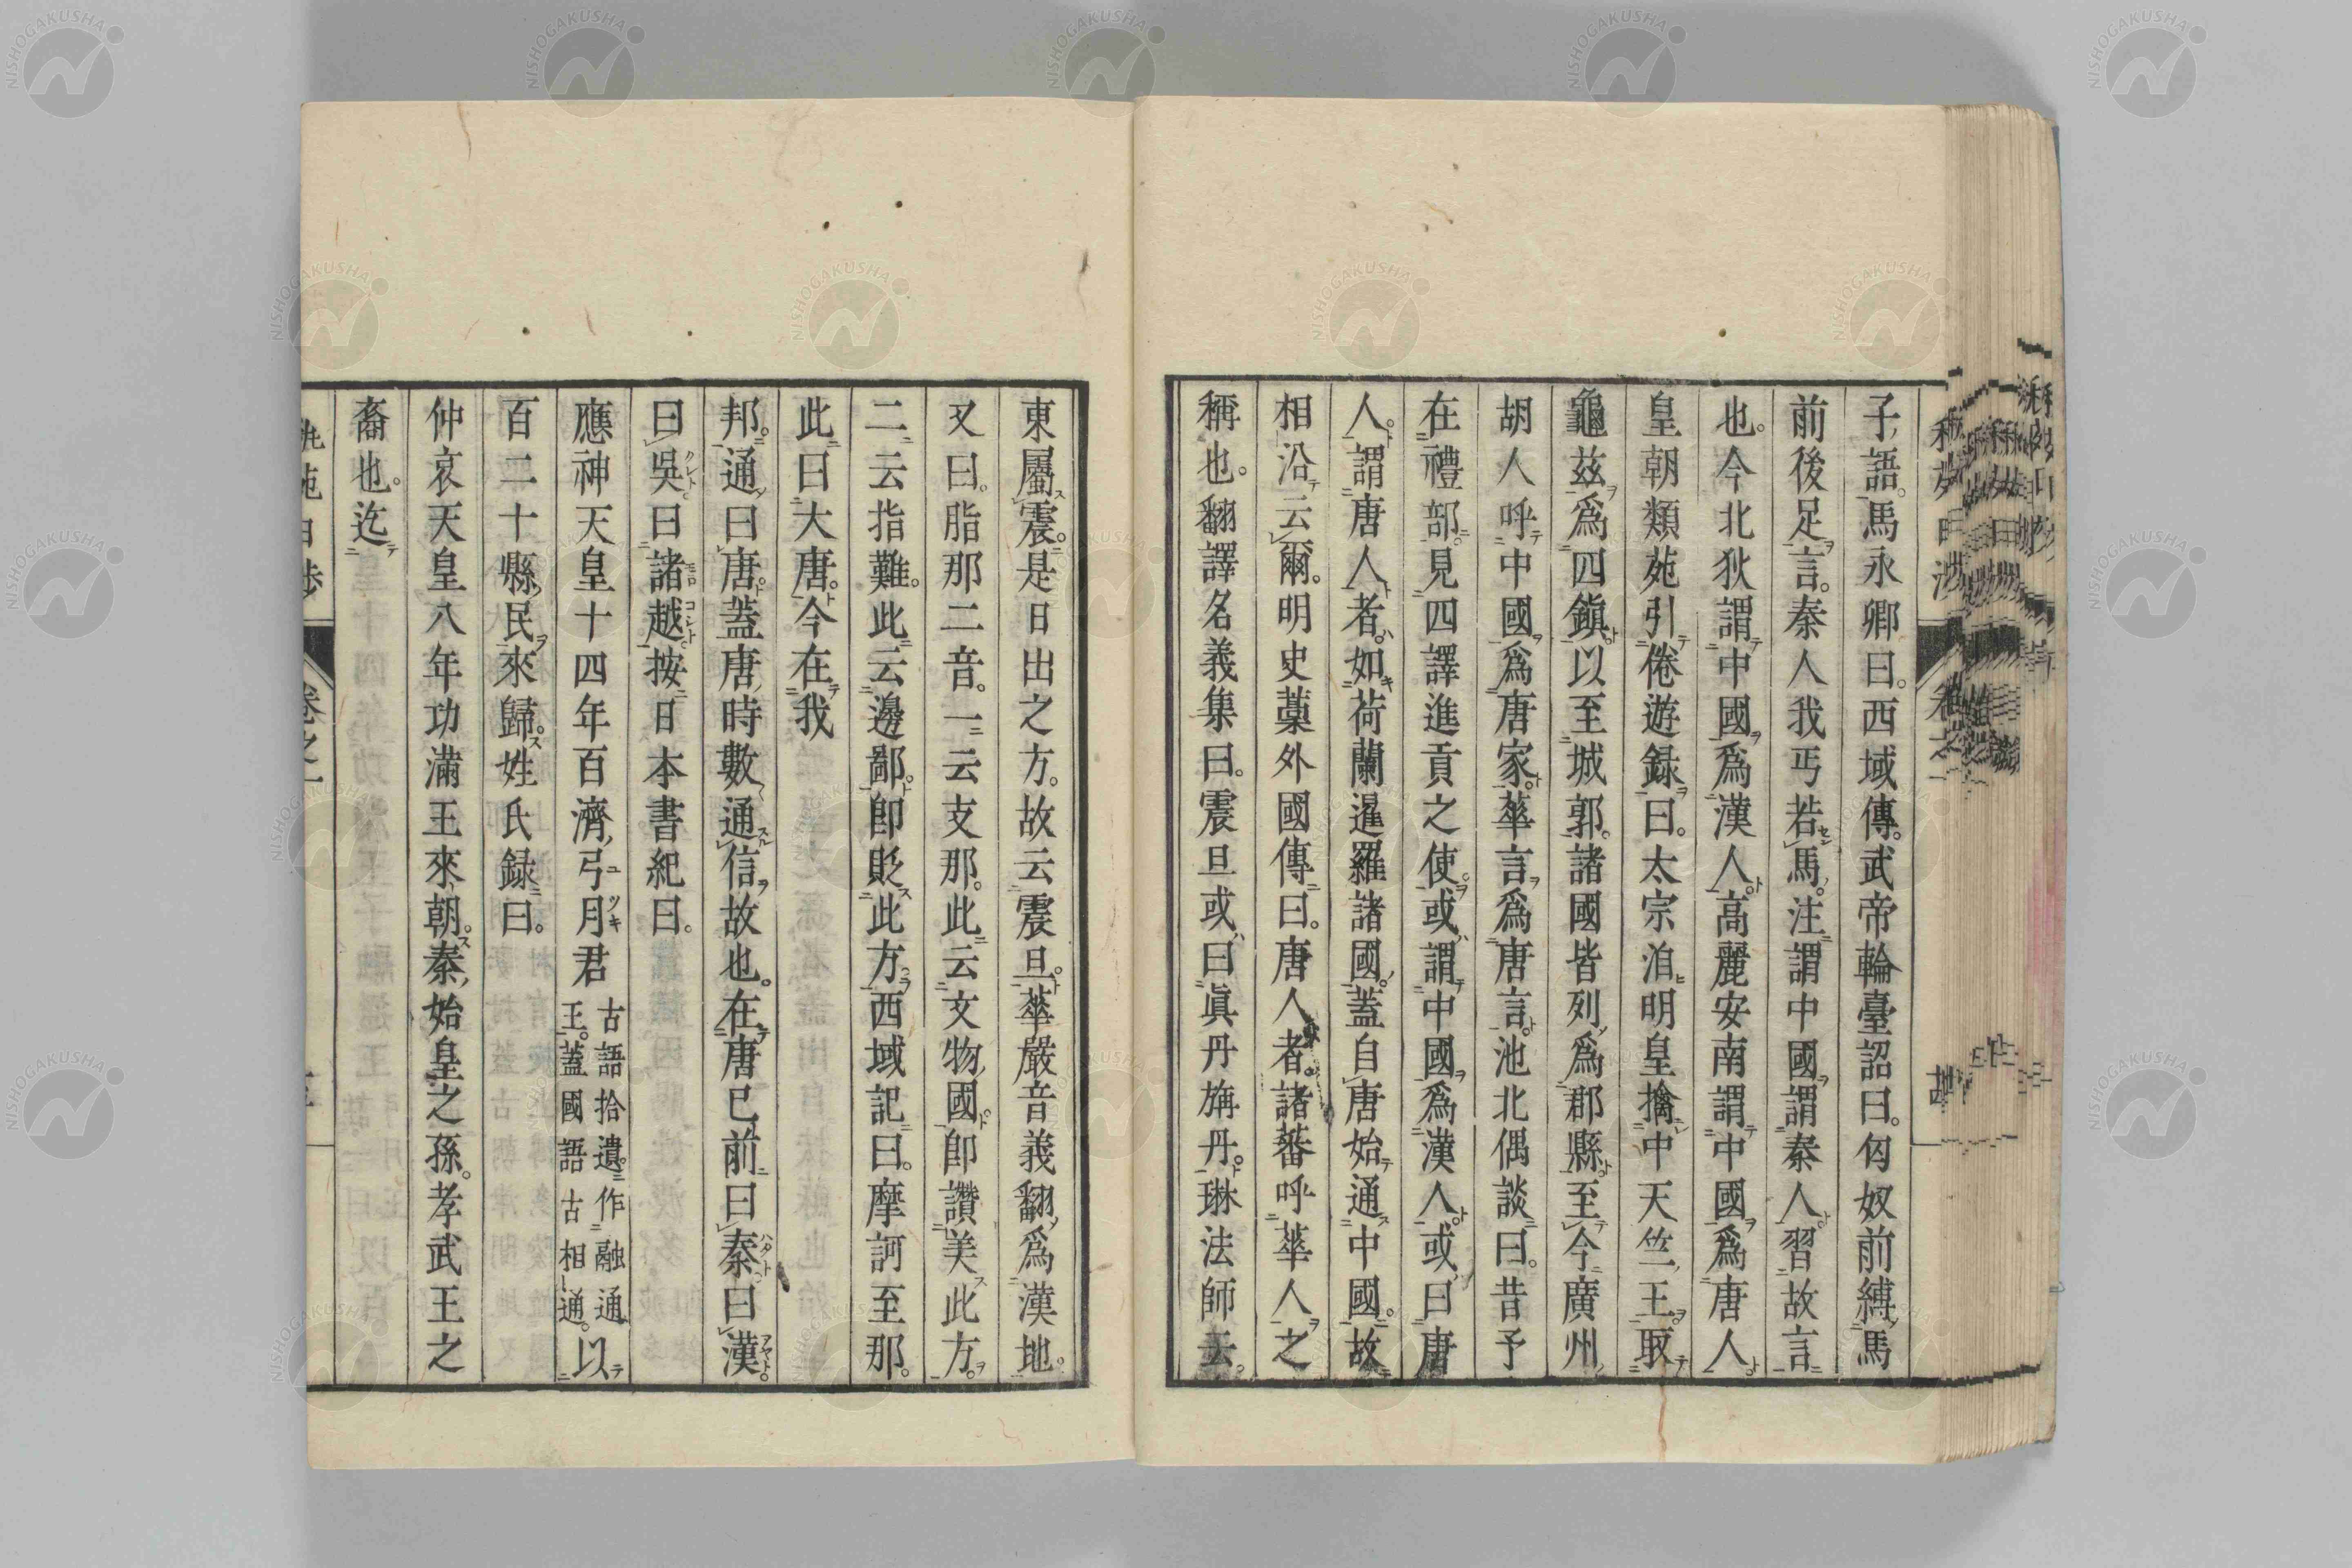 子語馬永卿曰。西域傳。武帝輪臺詔曰。匈奴前縛馬
前後足言。秦人我丐若馬。注謂中國謂秦人習故言
也。今北狄謂中國爲漢人。高麗安南謂中國爲唐人
皇朝類苑引倦遊録曰。太宗洎明皇擒中天竺王取
龜茲爲四鎭。以至城郭。諸國皆列爲郡縣至今廣州
胡人呼中國爲唐家。華言爲唐言。池北偶談曰。昔予
在禮部。見四譯進貢之使。或謂中國爲漢人。或曰唐
人。謂唐人者。如荷蘭暹羅諸國。蓋自唐始通中國。故
相沿云爾。明史藁外國傳曰。唐人者。諸蕃呼華人之
稱也。翻譯名義集曰。震旦或曰眞丹旃丹。琳法師云。
東屬震。是日出之方。故云震旦。華嚴音義翻爲漢地。
又曰。脂那二音。一云支那。此云文物國。卽讚美此方。
二云指難。此云邊鄙。卽貶此方。西域記曰。摩訶至那。
此曰大唐。今在我
邦。通曰唐。蓋唐時數通信故也。在唐已前曰秦曰漢。
曰吳。曰諸越。按日本書紀曰。
應神天皇十四年百濟弓月君古語拾遺。作融通王。蓋國語古相通。以
百二十縣民來歸。姓氏録曰。
仲哀天皇八年功滿王來朝。秦始皇之孫。孝武王之
裔也。迄
卷之一